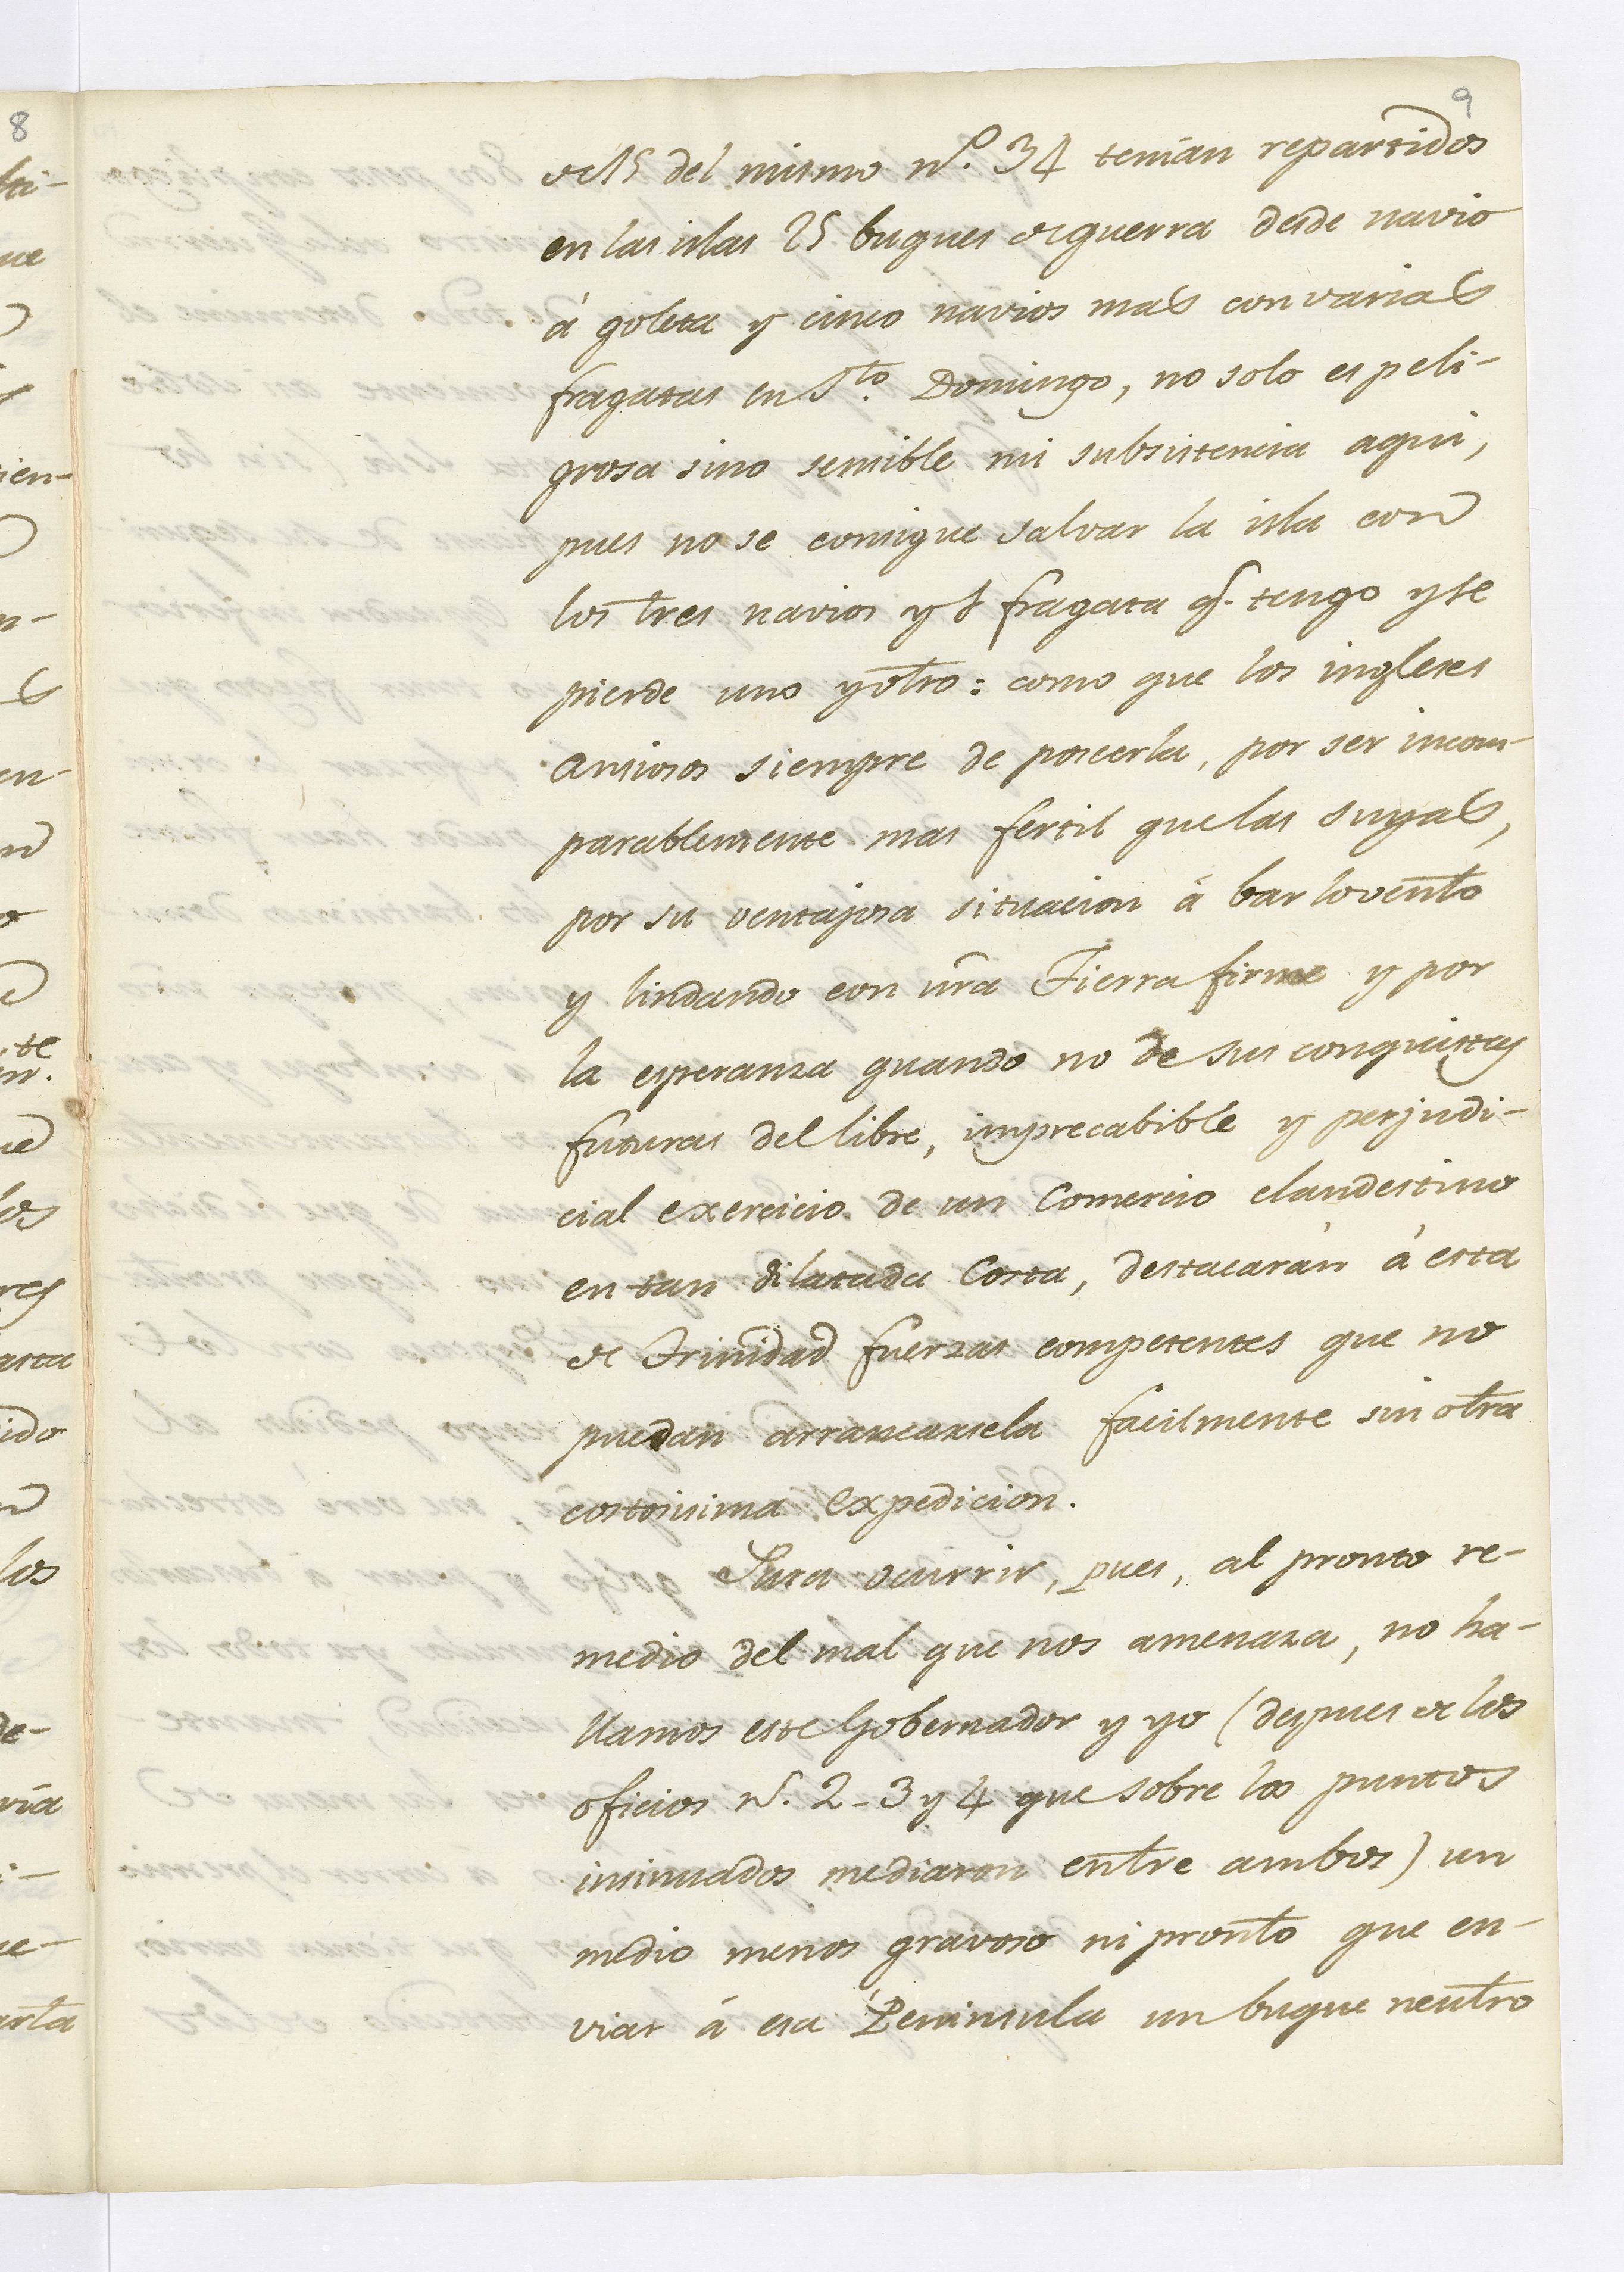 9
8
de 15 del mismo nº. 34 tenían repartidos
en las islas 25 buques de guerra desde navio
á goleta y cinco navios mas con varias
fragatas en Sto. Domingo, no solo es peli-
grosa sino sensible mi subsistencia aqui,
pues no se consigue salvar la isla con
los tres navios y 1 fragata q. tengo y se
pierde uno y otro: como que los ingleses
ansiosos siempre de poseerla, por ser incom-
parablemente mas fertil que las suyas,
por su ventajosa situacion á barlovento
y lindando con nra Tierra firme y por
la esperanza quando no de sus conquistas
futuras del libre, imprecabible y perjudi-
cial exercicio de un Comercio clandestino
en tan dilatada Costa, destacarán á esta
de Trinidad fuerzas competentes que no
puedan arrancarsela facilmente sin otra
costosisima expedicion.
Para ocurrir, pues, al pronto re-
medio del mal que nos amenaza, no ha-
llamos este Gobernador y yo (despues de los
oficios n. 2-3 y 4 que sobre los puntos
insinuados mediaron entre ambos) un
medio menos gravoso ni pronto que en-
viar á esa Peninsula un buque neutro